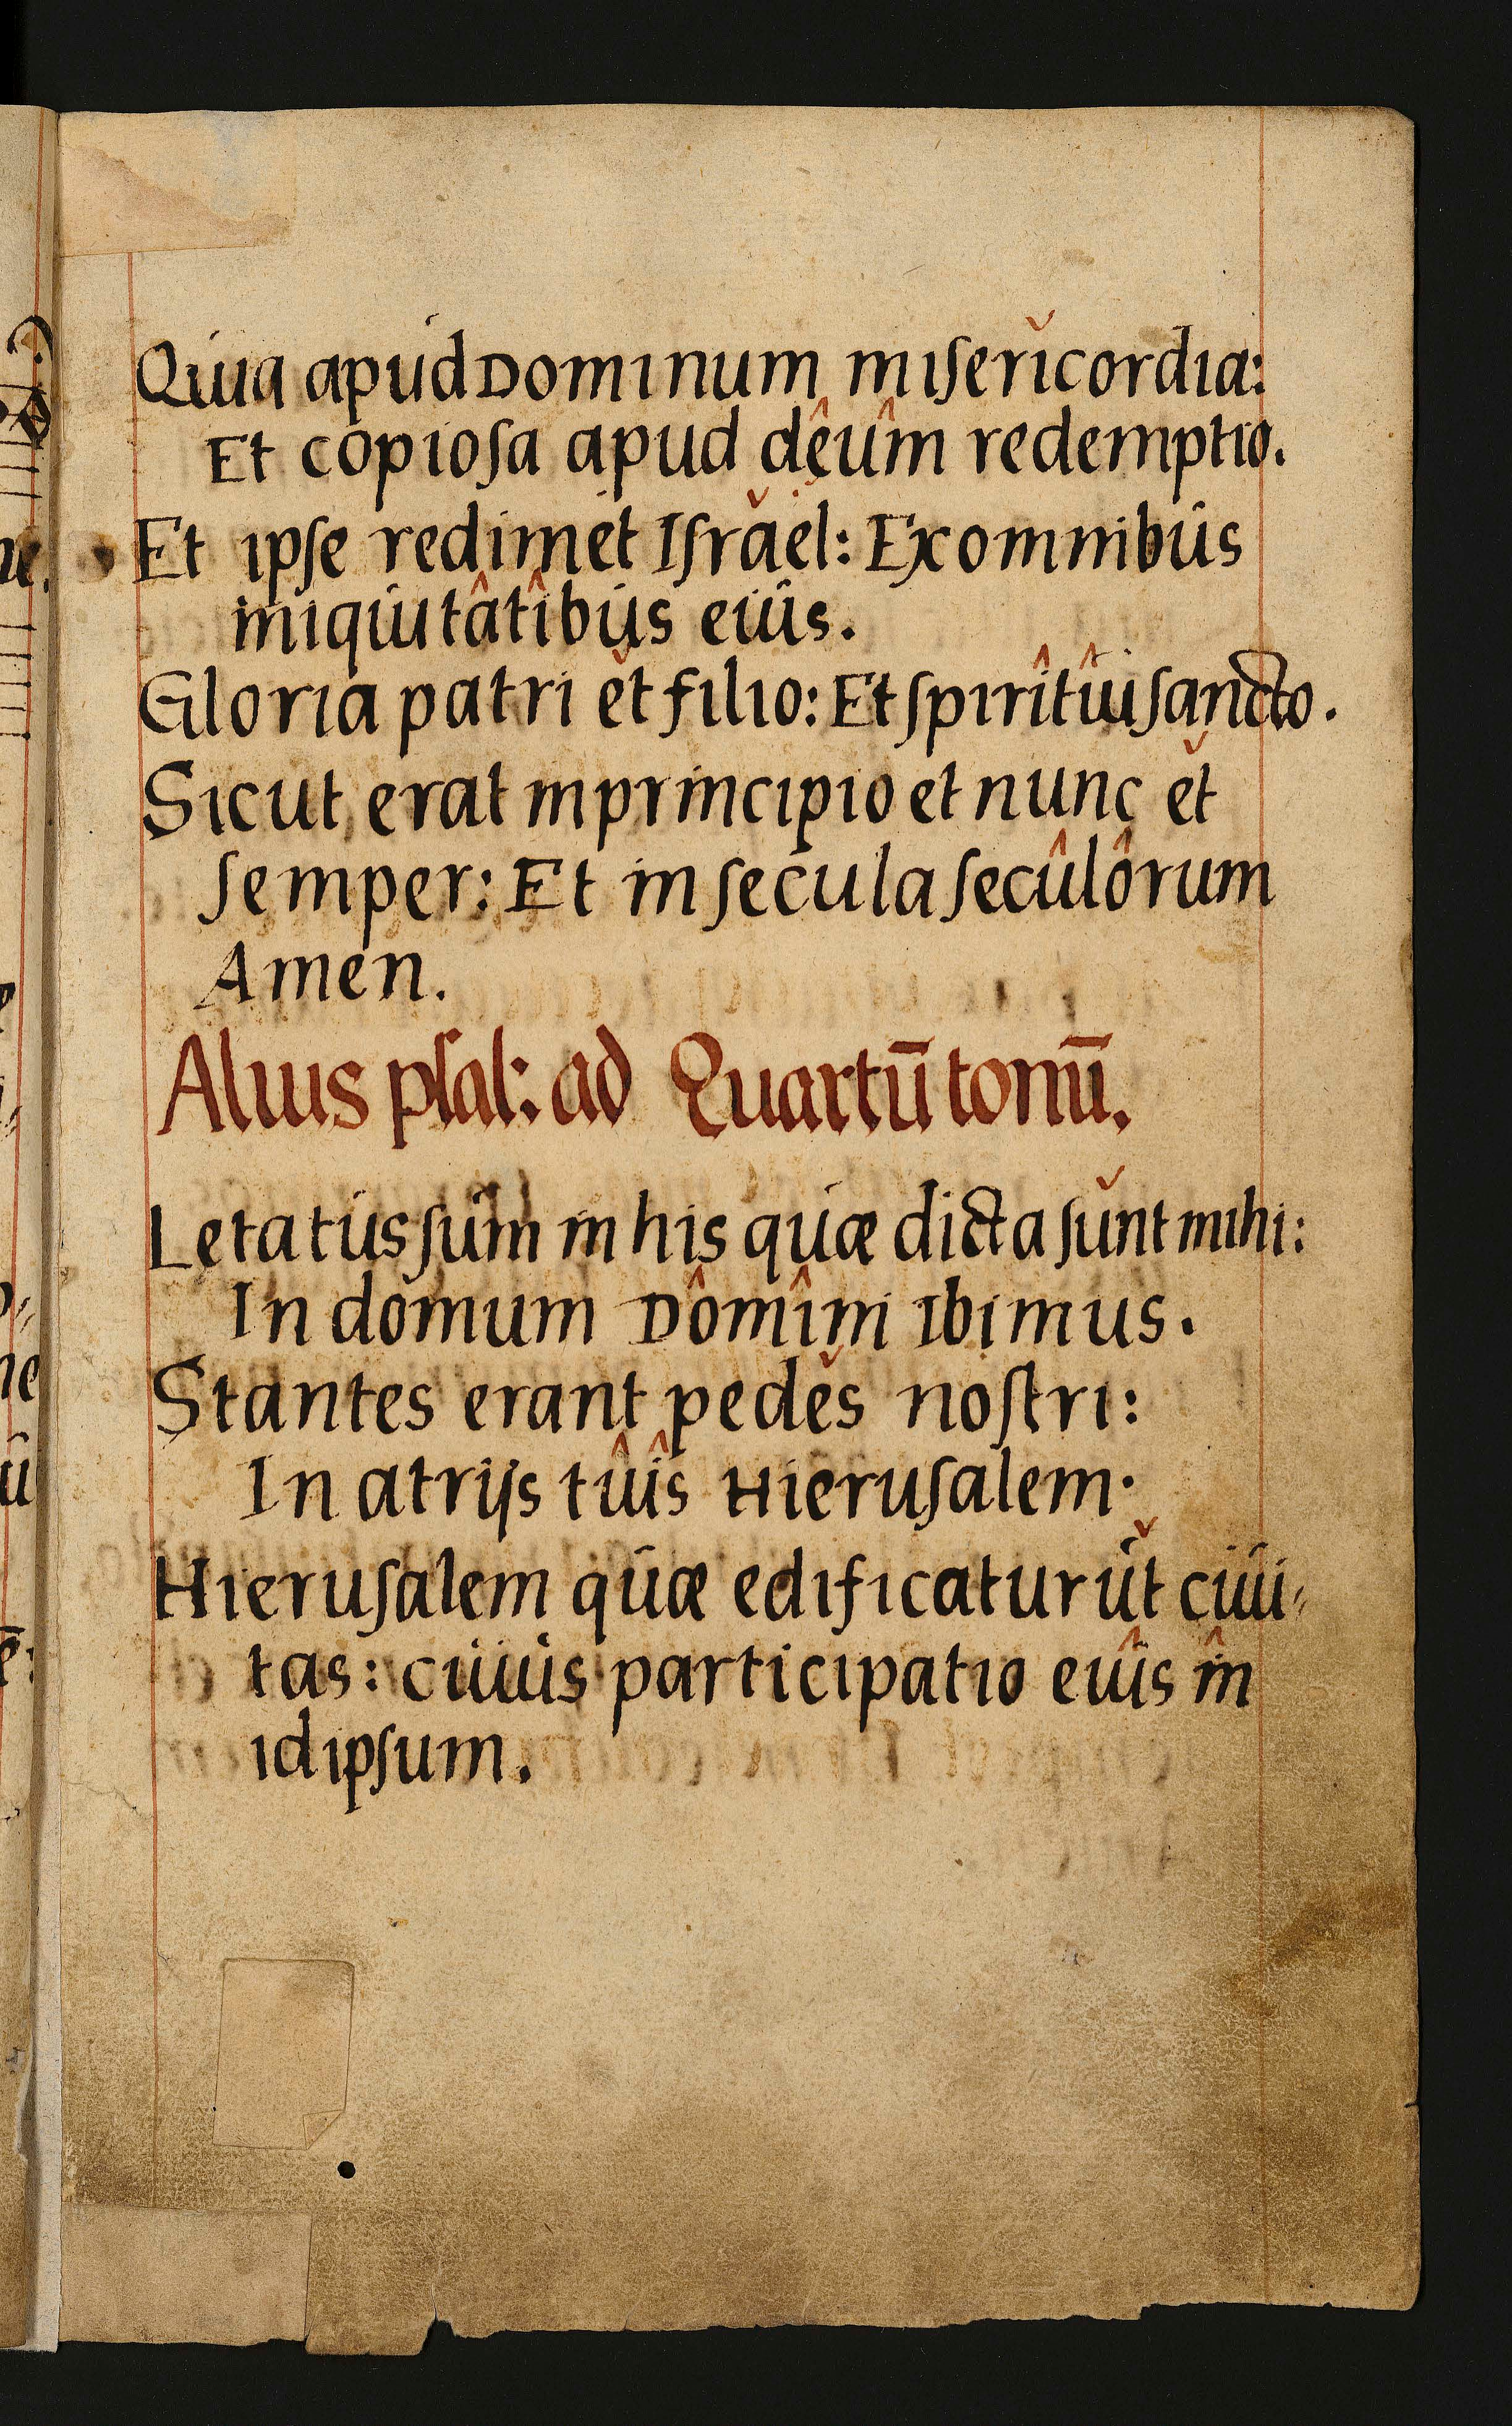 Quia apud Dominum miserĭcordia:
Et copiosa apud dêûm redemptio.
Et ipse redimet Isrăel: Ex omnibus
iniquitâtîbus eius.
Gloria patri ĕt filio: Et spirîtûi sancto.
Sicut erat in principio et nunc ĕt
semper: Et in secula secûlôrum
Amen.
Alius psal: ad Quartū tonū.
Letatus sum in his quæ dicta sŭnt mihi:
In domum Dômîni Ibimus.
Stantes erant pedĕs nostri:
In atrijs tûîs Hierusalem.
Hierusalem quæ edificatur ŭt ciui-
tas: cuius participatio eiûs în
idipsum.